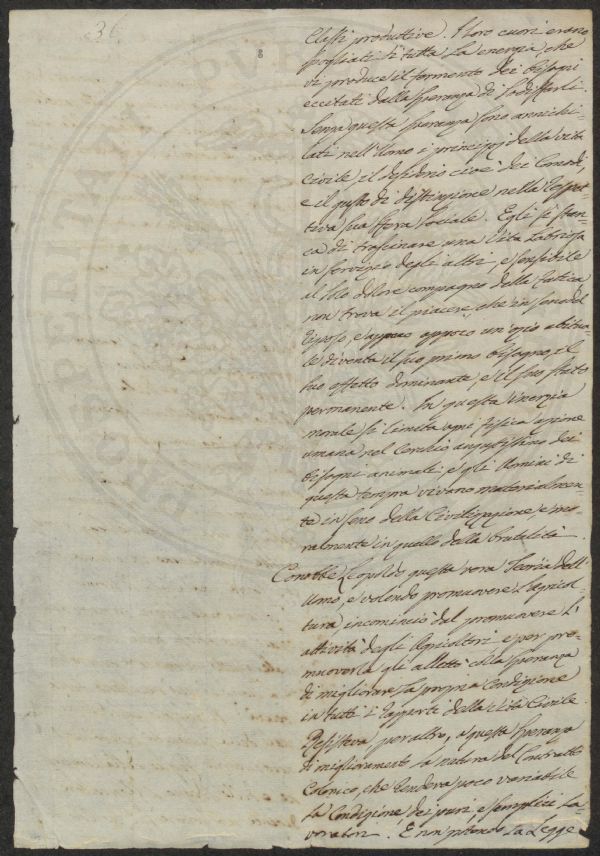 36
8
Classi produttive. I loro cuori erano
spogliati di tutta la energia che
vi produce il fermento dei bisogni
eccitati dalla speranza di sodisfarli.
Senza questa speranza sono annichi-
lati nell'Uomo i principj della vita
civile il desiderio cioè dei Comodi,
e il gusto di distinzione nella rispet-
tiva sua sfera sociale. Egli si stan-
ca di trascinare una vita laboriosa
in servizio degli altri, e sensibile
al solo dolore compagno della fatica
non trova il piacere che in seno del
riposo, e appoco appoco un ozio abitua-
le diventa il suo primo bisogno, il
suo affetto dominante, e il suo stato
permanente. In questa inerzia
morale si limita ogni fisica azione
umana nel Cerchio angustissimo dei
bisogni animali, e gli Uomini di
questa tempra vivano materialmen-
te in seno della Civilizzazione, e mo-
ralmente in quello della brutalità.
Conobbe Leopoldo questa vera Teoria dell'
Uomo, e volendo promuovere l'agricol-
tura incominciò dal promuovere l'
attività degli Agricoltori e per pro-
muoverla gli allettò colla speranza
di migliorare la propria Condizione
in tutti i rapporti della Vita Civile.
Resisteva peraltro, a questa speranza
di miglioramento la natura del Contratto
Colonico, che rendeva poco variabile
la Condizione dei puri, e semplici la-
voratori. E non potendo la Legge
PROPRIETATI PUB